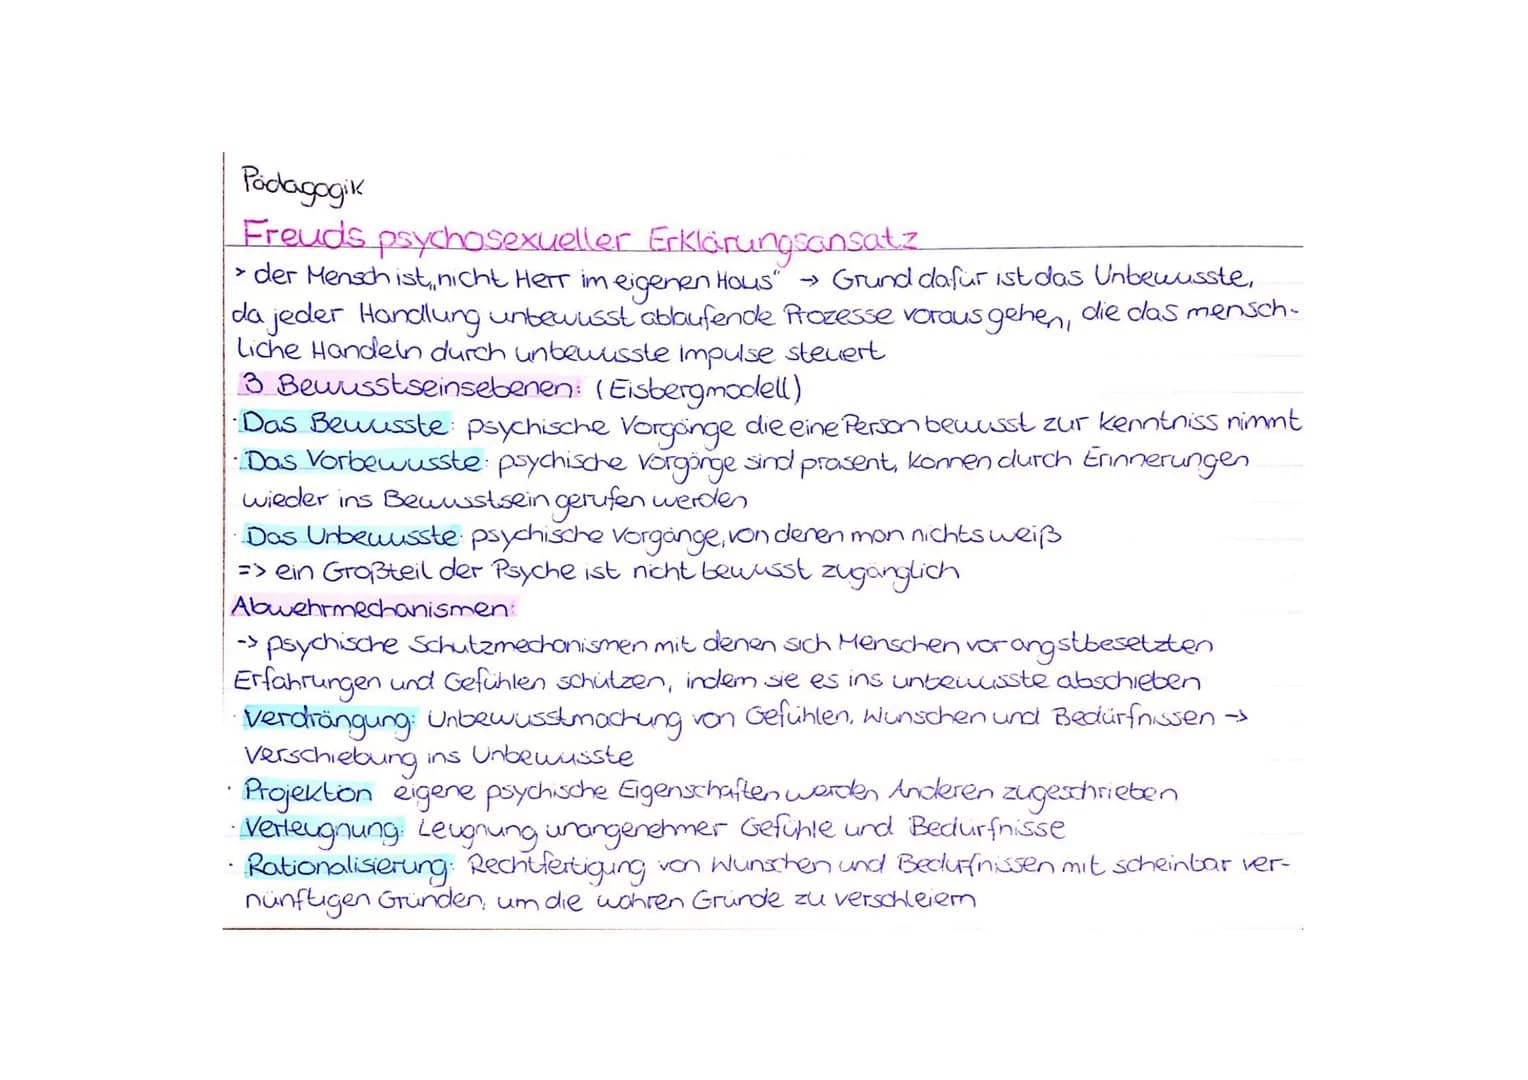 Pädagogik
Freuds psychosexueller Erklärungsansatz
> der Mensch ist „nicht Herr im eigenen Haus" → Grund dafür ist das Unbewusste,
da jeder Handlung unbewusst ablaufende Prozesse vorausgehen, die das mensch-
liche Handeln durch unbewusste impulse steuert
3 Bewusstseinsebenen: (Eisbergmodell)
· Das Bewusste: psychische Vorgänge die eine Person bewusst zur kenntniss nimmt
· Das Vorbewusste: psychische Vorgänge sind präsent, können durch Erinnerungen
wieder ins Bewusstsein gerufen werden
· Das Unbewusste: psychische Vorgänge, von denen man nichts weiß
=> ein Großteil der Psyche ist nicht bewusst zugänglich
Abwehrmechanismen:
-> psychische Schutzmechanismen mit denen sich Menschen vor angstbesetzten
Erfahrungen und Gefühlen schützen, indem sie es ins unbewusste abschieben
· Verdrängung: Unbewusstmachung von Gefühlen, Wünschen und Bedürfnissen ->
Verschiebung ins Unbewusste
· Projektion eigene psychische Eigenschaften werden Anderen zugeschrieben
· Verleugnung: Leugnung unangenehmer Gefühle und Bedürfnisse
· Rationalisierung: Rechtfertigung von Wünschen und Bedürfnissen mit scheinbar ver-
nünftigen Gründen, um die wahren Gründe zu verschleiern